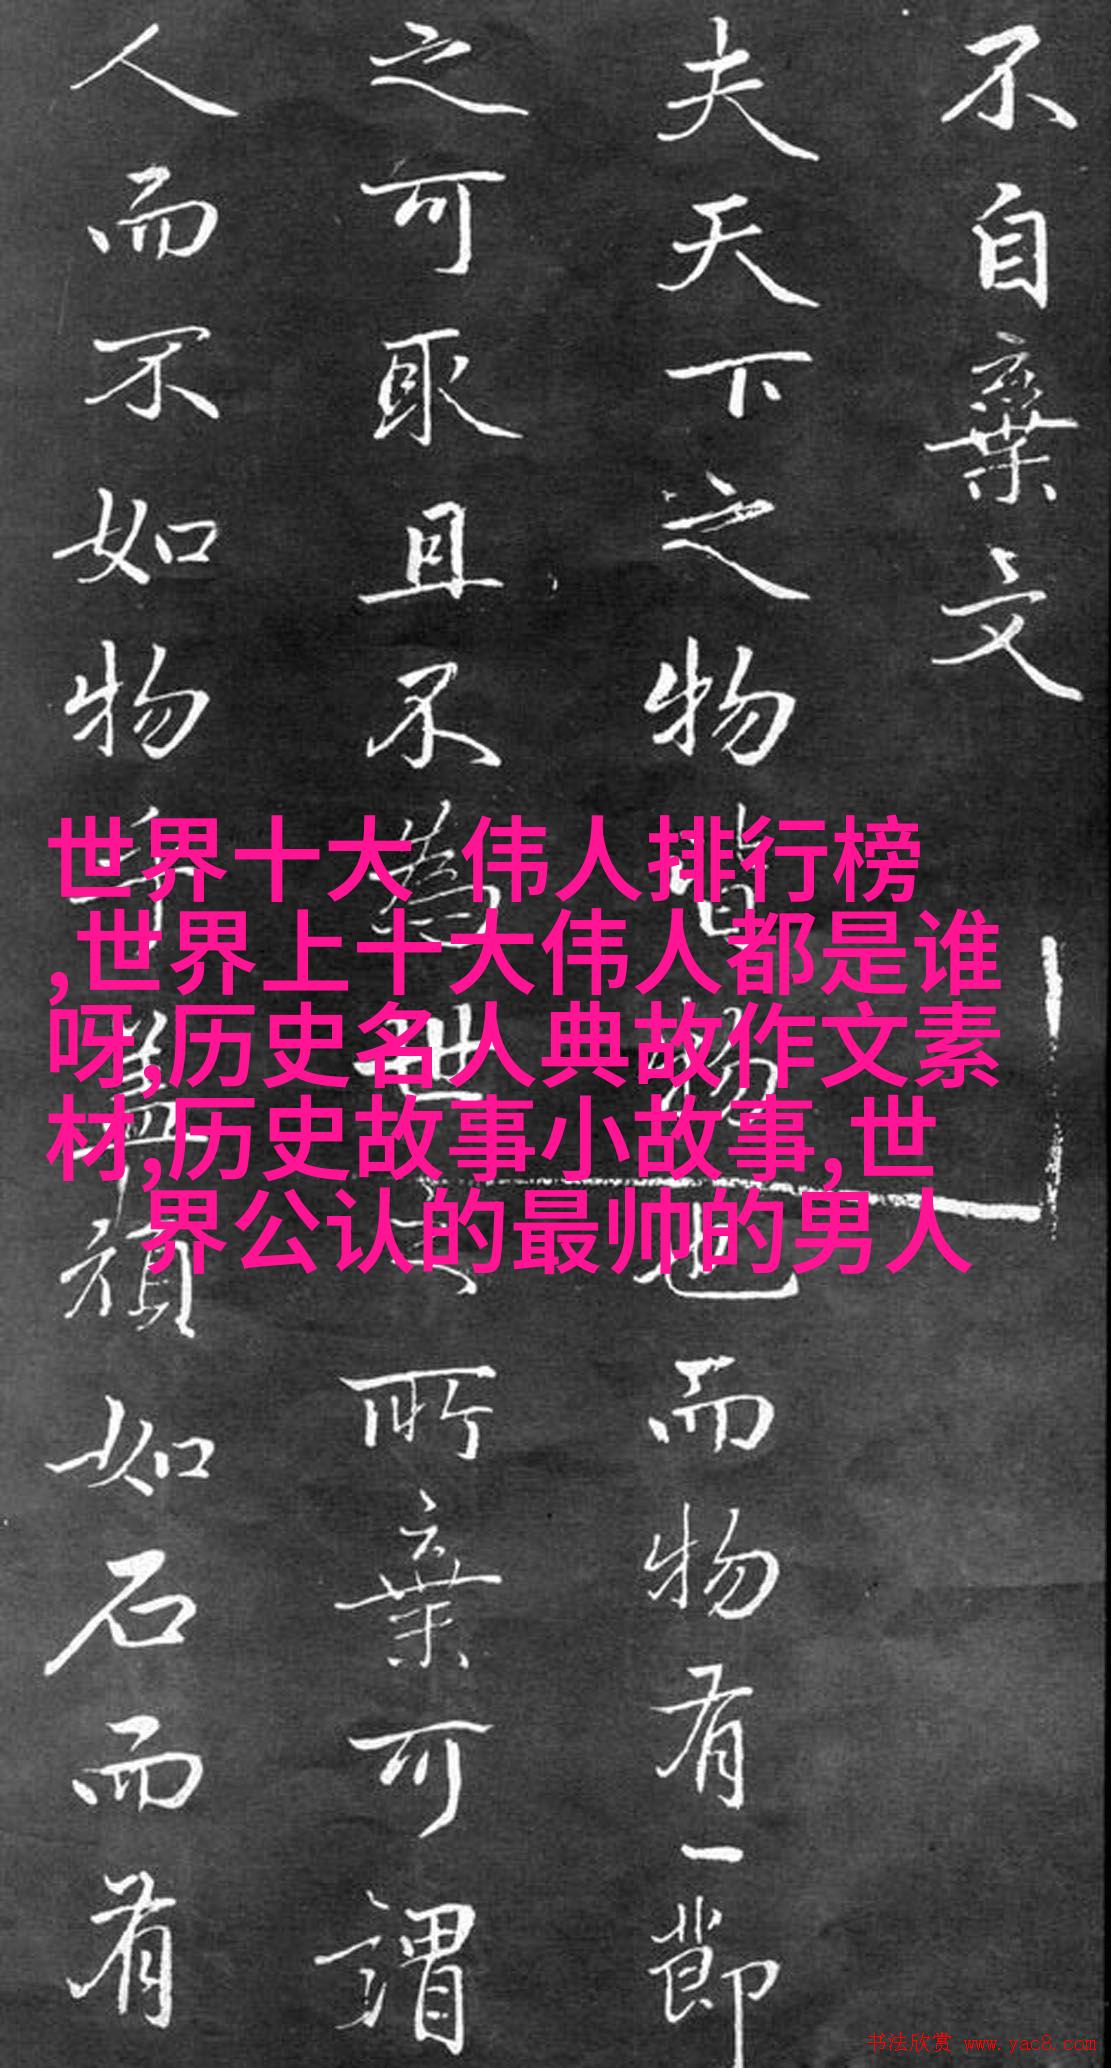 不自棄文
夫天下之物皆物也而物有一節
之可取且不為世之所棄可謂
人而不如物乎蓋頑如石而有
世界十大 伟人排行榜
,世界上十大伟人都是谁
呀,历史名人典故作文素
材,历史故事小故事,世
界公认的最帅的男人
书法欣赏 www.yac8.com